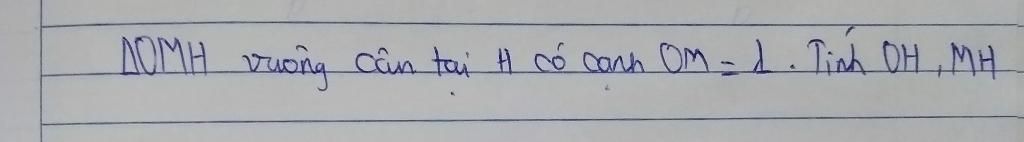 ΔOMH vuông cân tại H có cạnh OM = 1. Tính OH, MH